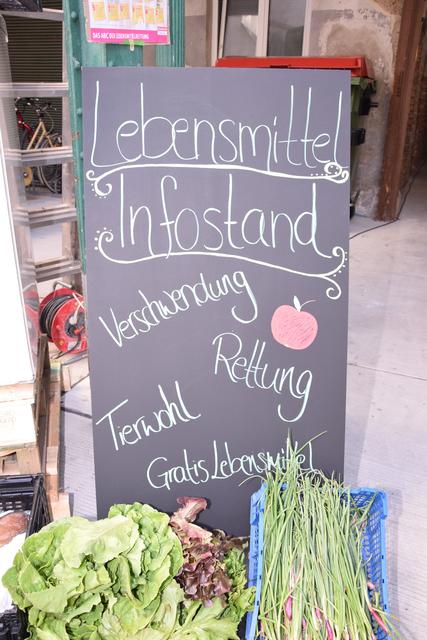 DAS ABC DER LEBENSMITTELRETTUNG
Lebensmittel
Infostand
Verschwendung
Rettung
Tierwohl
Gratis Lebensmittel